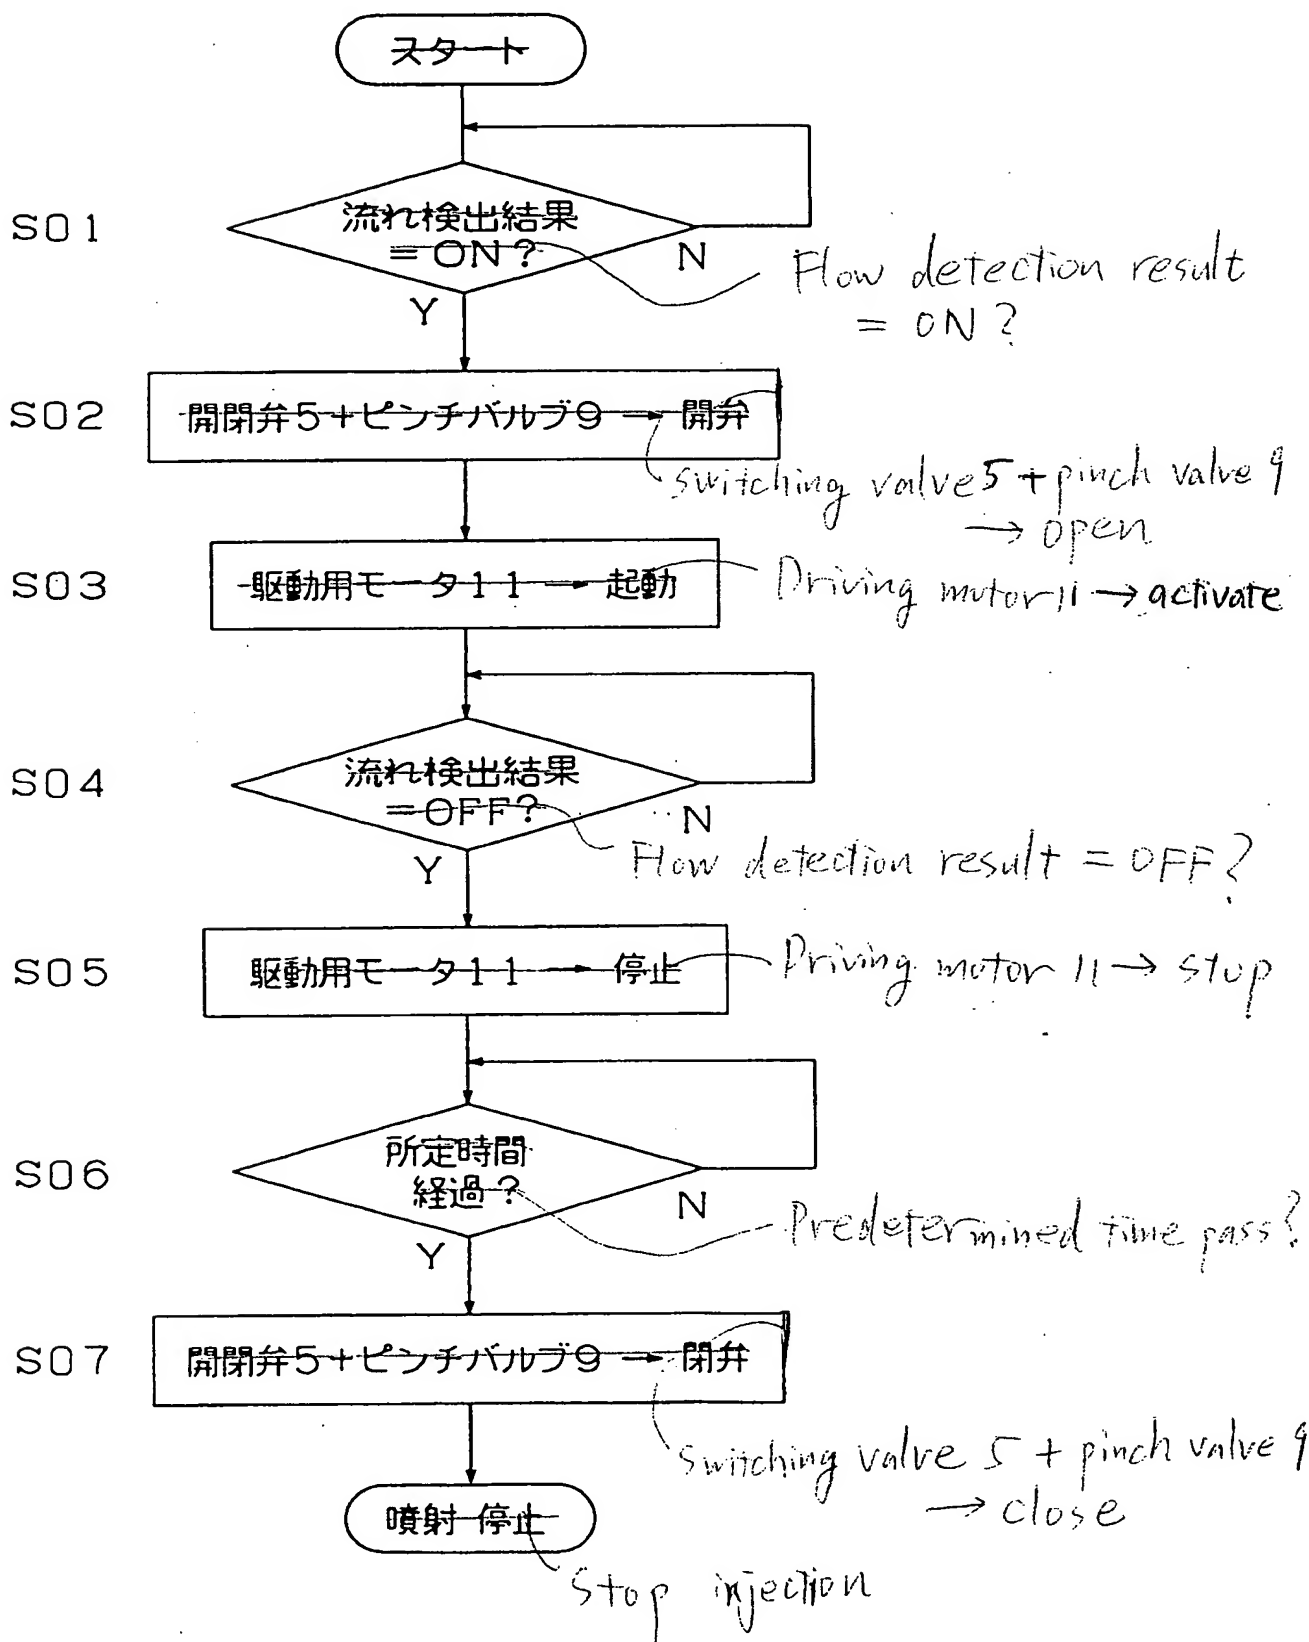 スタート
S01
流れ検出結果
=ON?
N
Y
Flow detection result
= ON?
S02
開閉弁5+ピンチバルブ9 → 開弁
switching valve 5 + pinch valve 9
→ open
S03
駆動用モータ11 → 起動
Driving motor 11 → activate
S04
流れ検出結果
=OFF?
N
Y
Flow detection result = OFF?
S05
駆動用モータ11 → 停止
Driving motor 11 → stop
S06
所定時間
経過?
N
Y
Predetermined time pass?
S07
開閉弁5+ピンチバルブ9 → 閉弁
Switching valve 5 + pinch valve 9
→ close
噴射 停止
Stop injection